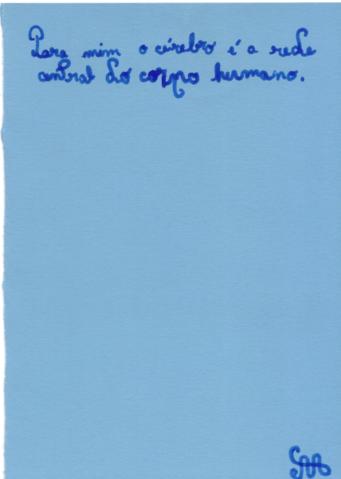 Para mim o cérebro é a rede
central do corpo humano.